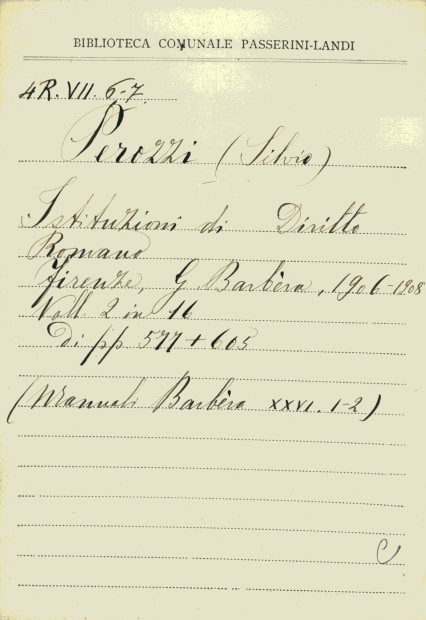 BIBLIOTECA COMUNALE PASSERINI-LANDI
4R. VII. 6-7
Perozzi (Silvio)
Istituzioni di Diritto
Romano
Firenze, G Barbèra, 1906-1908
Voll. 2 in 16
di pp. 577 + 605
(Manuali Barbèra XXVI. 1-2)